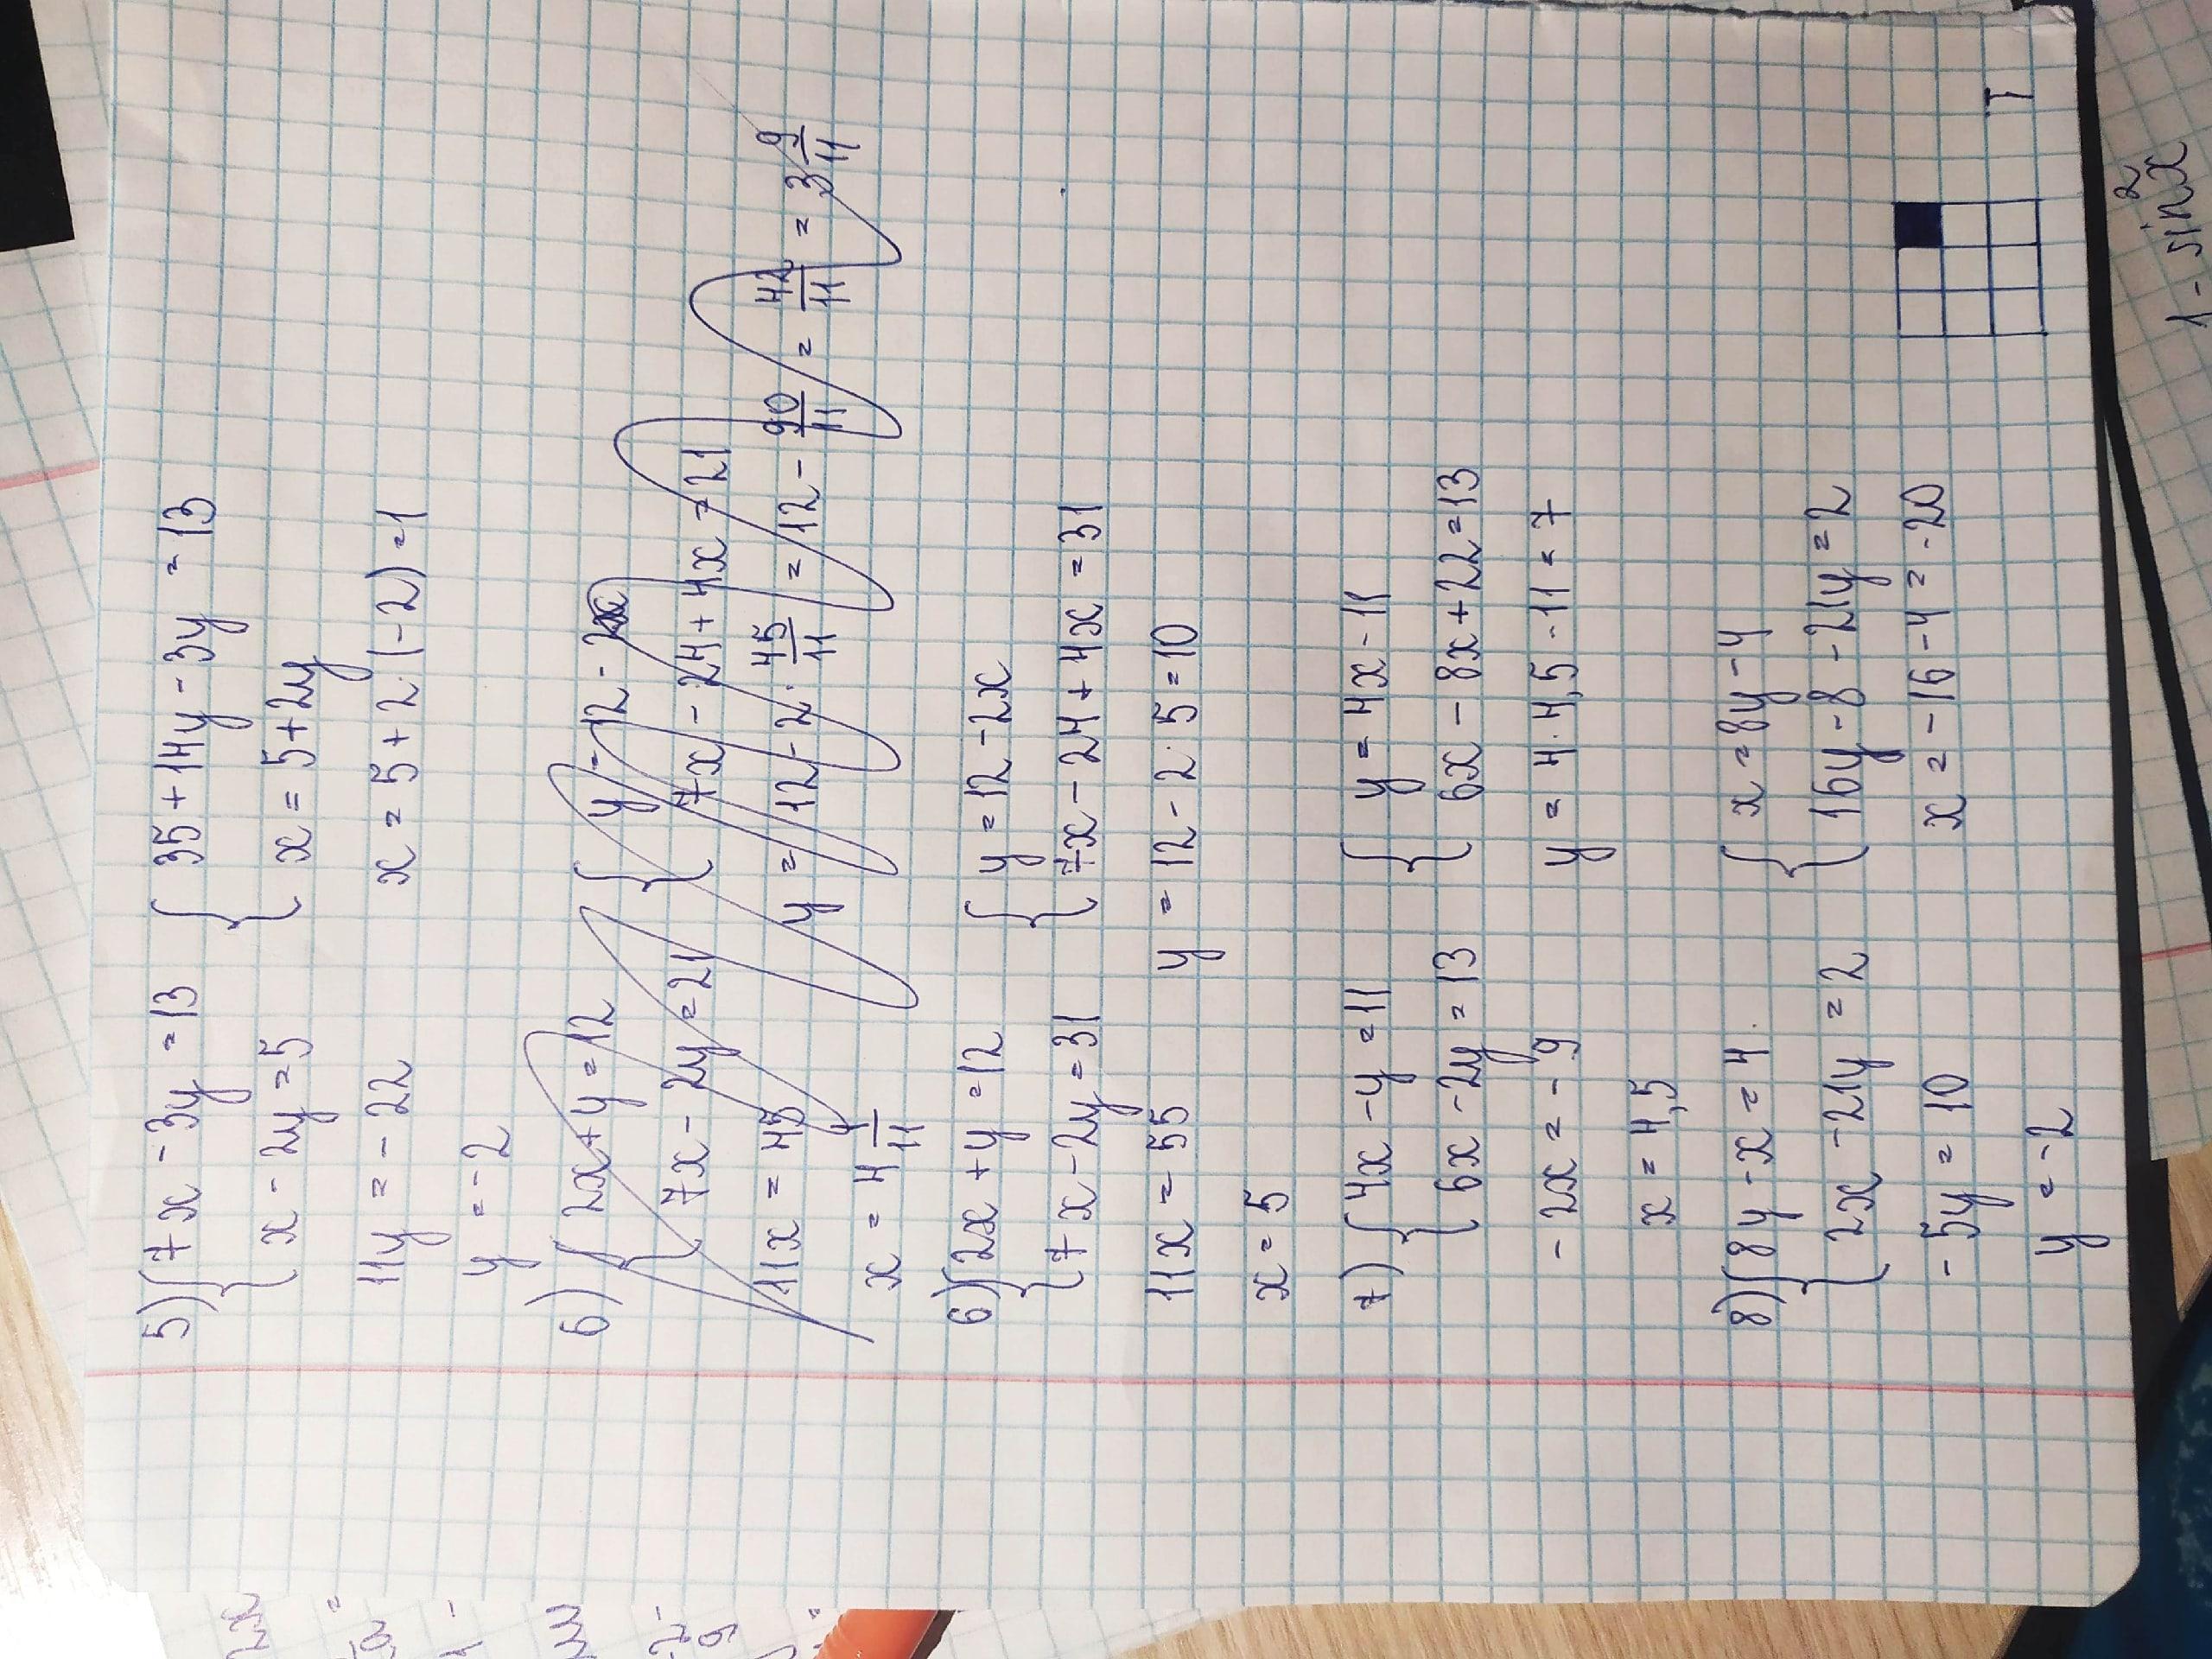 5) { 7x - 3y = 13 { 35 + 14y - 3y = 13
x - 2y = 5 x = 5 + 2y
11y = - 22 x = 5 + 2 · (-2) = 1
y = - 2
6) { 2x + y = 12 { y = 12 - 2x
7x - 2y = 21 7x - 24 + 4x = 21
11x = 45 y = 12 - 2 · 45/11 = 12 - 90/11 = 42/11 = 3 9/11
x = 4 1/11
6) { 2x + y = 12 { y = 12 - 2x
7x - 2y = 31 7x - 24 + 4x = 31
11x = 55 y = 12 - 2 · 5 = 10
x = 5
7) { 4x - y = 11 { y = 4x - 11
6x - 2y = 13 6x - 8x + 22 = 13
- 2x = - 9 y = 4 · 4,5 - 11 = 7
x = 4,5
8) { 8y - x = 4 { x = 8y - 4
2x - 21y = 2 16y - 8 - 21y = 2
- 5y = 10 x = - 16 - 4 = - 20
y = - 2
1 - sin²x